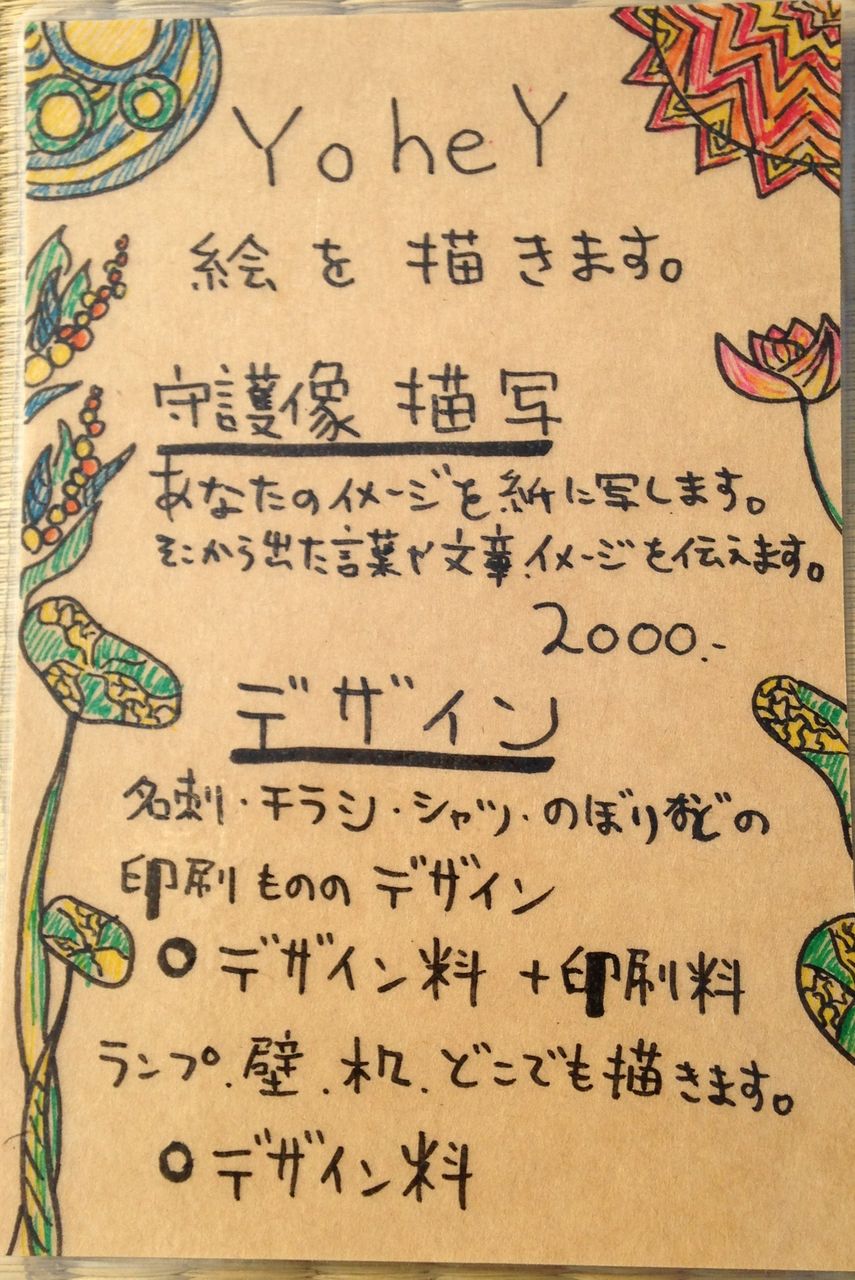 YoheY
絵を描きます。
守護像 描写
あなたのイメージを紙に写します。
そこから出た言葉や文章、イメージを伝えます。
2000.-
デザイン
名刺・チラシ・シャツ・のぼりなどの
印刷もののデザイン
○デザイン料+印刷料
ランプ、壁、机、どこでも描きます。
○デザイン料